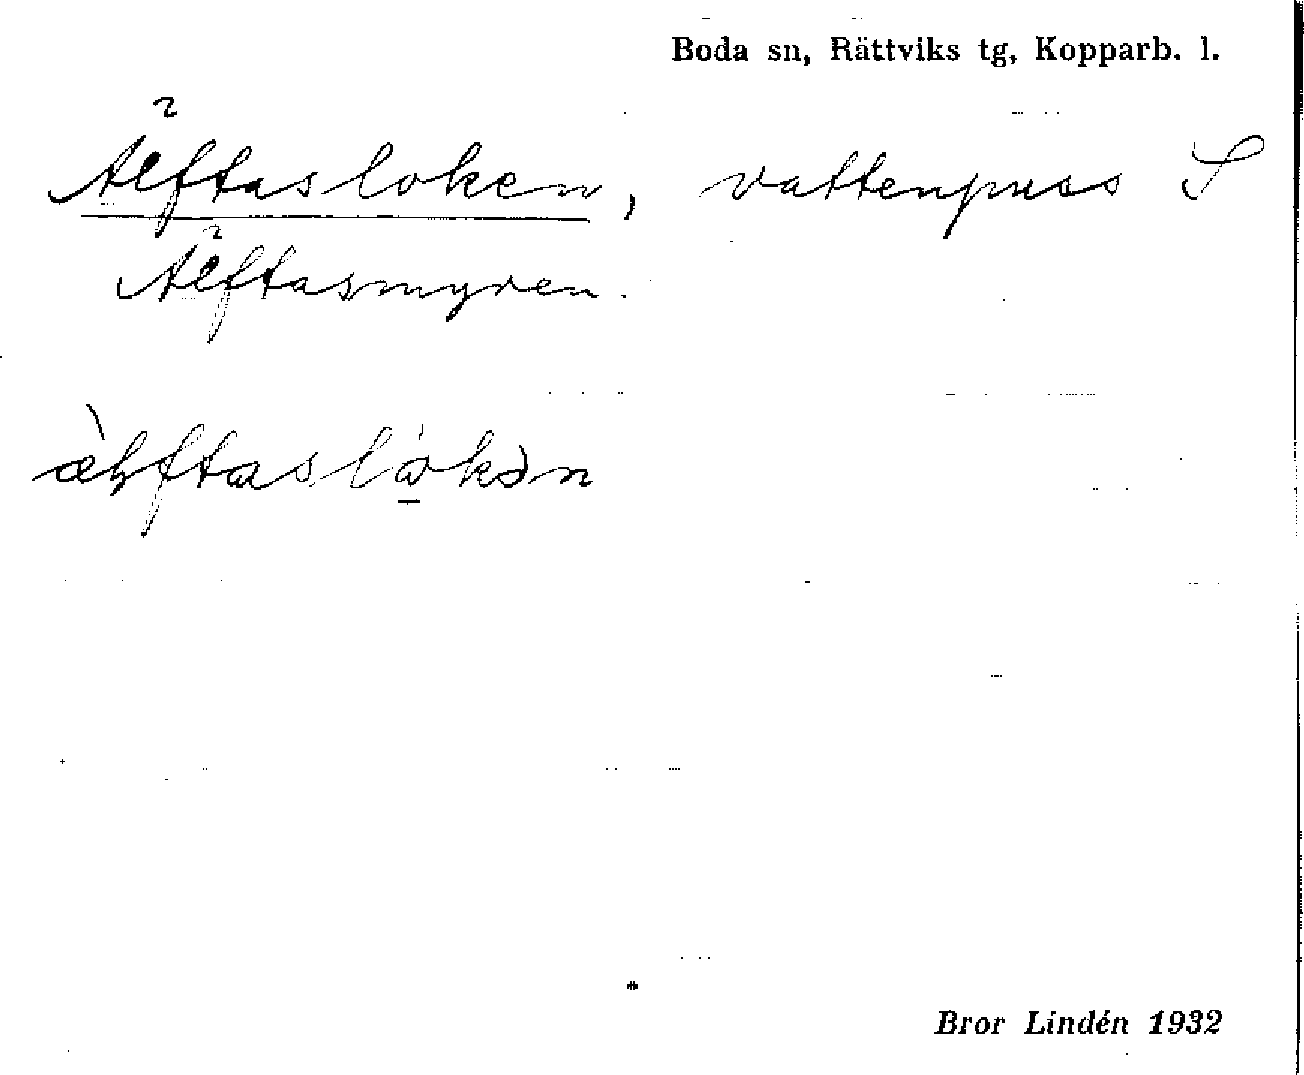 Boda sn, Rättviks tg, Kopparb. l.
Älftasloken, vattenpuss S
Älftasmyren.
Bror Lindén 1932